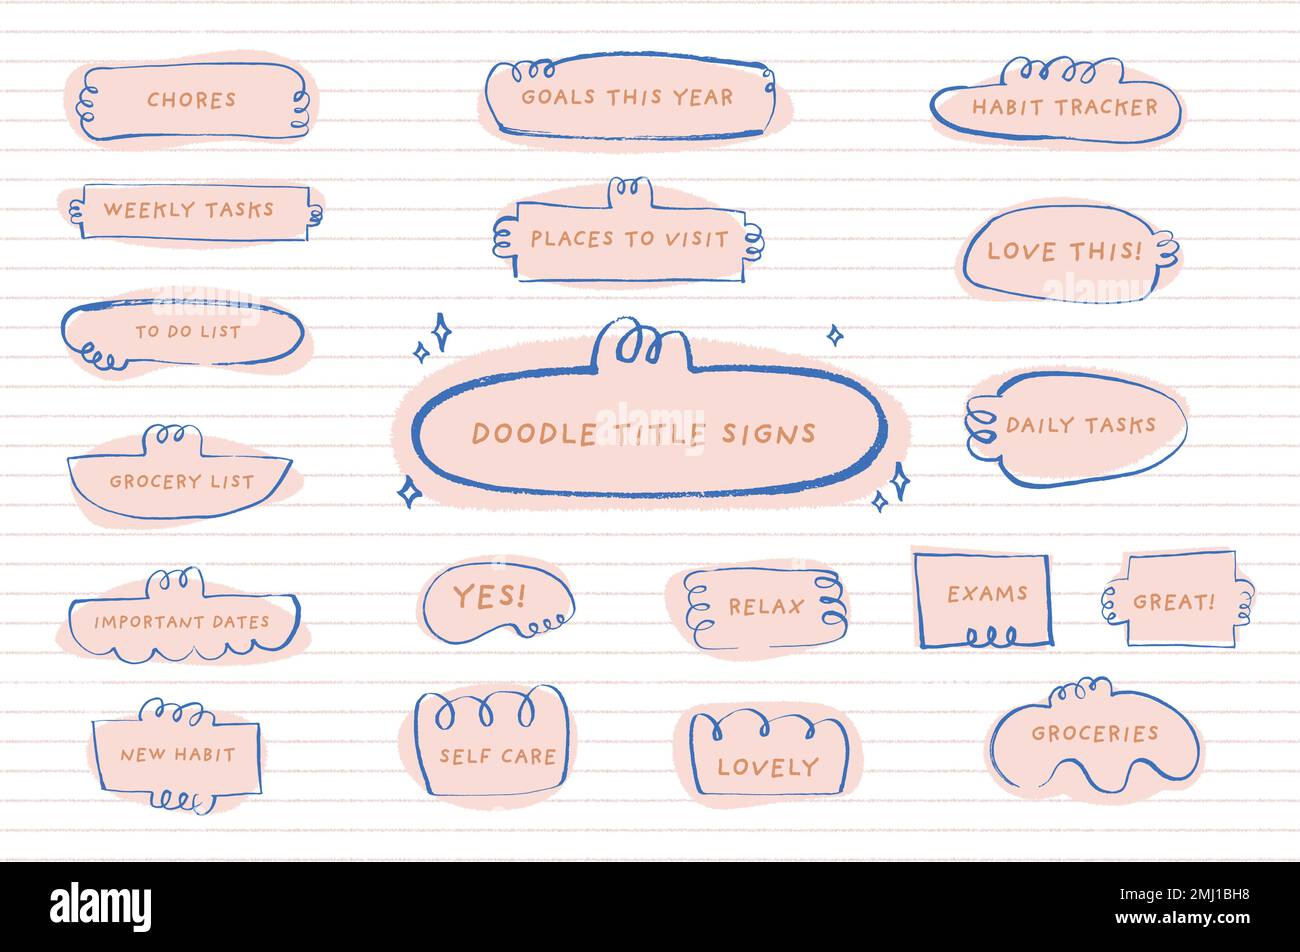 CHORES
GOALS THIS YEAR
HABIT TRACKER
WEEKLY TASKS
PLACES TO VISIT
LOVE THIS!
TO DO LIST
DOODLE TITLE SIGNS
DAILY TASKS
GROCERY LIST
IMPORTANT DATES
YES!
RELAX
EXAMS
GREAT!
NEW HABIT
SELF CARE
LOVELY
GROCERIES
alamy
Image ID: 2MJ1BH8
www.alamy.com